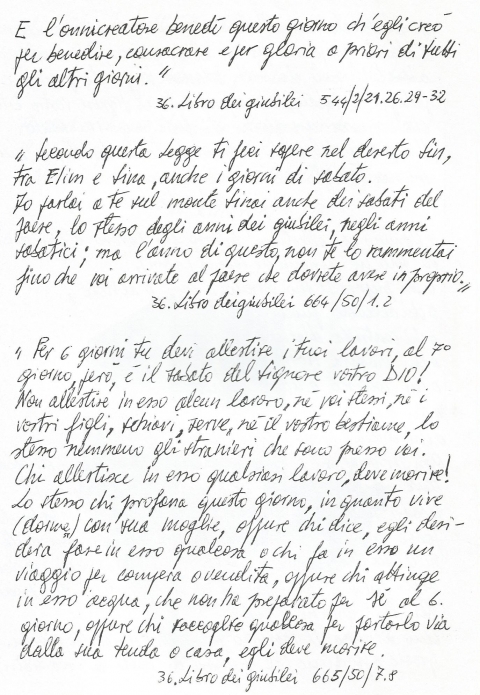 E l'onnicreatore benedì questo giorno ch'egli creò
per benedire, consacrare e per gloria a priori di tutti
gli altri giorni."
36. Libro dei giubilei 544/2/21.26.29-32
"Secondo questa legge ti feci sapere nel deserto Sin,
tra Elim e Sina, anche i giorni di sabato.
Io parlai a te sul monte Sinai anche dei sabati del
paese, lo stesso degli anni dei giubilei, negli anni
sabatici; ma l'anno di questo, non te lo rammentai
fino che voi arrivate al paese che dovrete avere in proprio."
36. Libro dei giubilei 664/50/1.2
"Per 6 giorni tu devi allestire i tuoi lavori, al 7°
giorno, però, è il sabato del Signore vostro DIO!
Non allestire in esso alcun lavoro, né voi stessi, né i
vostri figli, schiavi, serve, né il vostro bestiame, lo
stesso nemmeno gli stranieri che sono presso voi.
Chi allestisce in esso qualsiasi lavoro, deve morire!
Lo stesso chi profana questo giorno, in quanto vive
(dorme) con sua moglie, oppure chi dice, egli desi-
dera fare in esso qualcosa o chi fa in esso un
viaggio per compera o vendita, oppure chi attinge
in esso acqua, che non ha preparato per sé al 6.
giorno, oppure chi raccoglie qualcosa per portarlo via
dalla sua tenda o casa, egli deve morire.
36. Libro dei giubilei 665/50/7.8